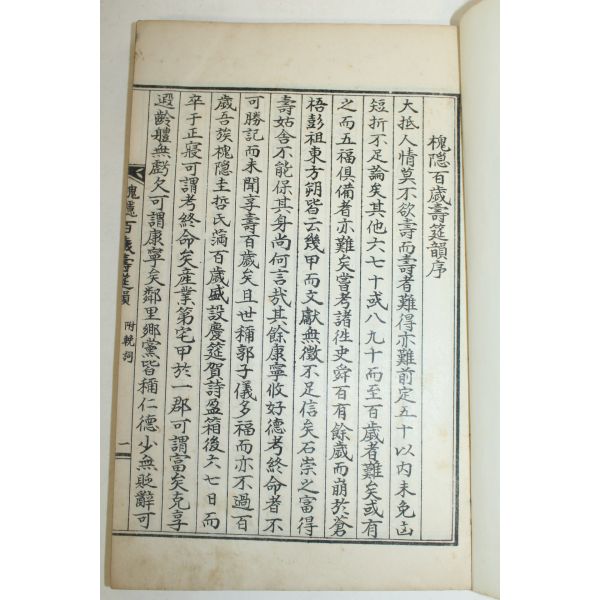 槐隠百歲壽筵韻序
大抵人情莫不欲壽而壽者難得亦難前定五十以内未免凶
短折不足論矣其他六七十或八九十而至百歲者難矣或有
之而五福俱備者亦難矣嘗考諸徃史舜百有餘歲而崩於蒼
梧彭祖東方朔皆云幾甲而文獻無徵不足信矣石崇之富得
壽姑舍不能保其身尚何言㦲其餘康寧攸好德考終命者不
可勝記而未聞享壽百歲矣且世稱郭子儀多福而亦不過百
歲吾族槐隠圭哲氏滿百歲盛設慶筵賀詩盈箱後六七日而
卒于正寢可謂考終命矣産業第宅甲於一郡可謂富矣克享
遐齡軆無虧欠可謂康寧矣鄰里鄉黨皆稱仁德少無貶辭可
槐隠百歲壽筵韻 附輓詞 一